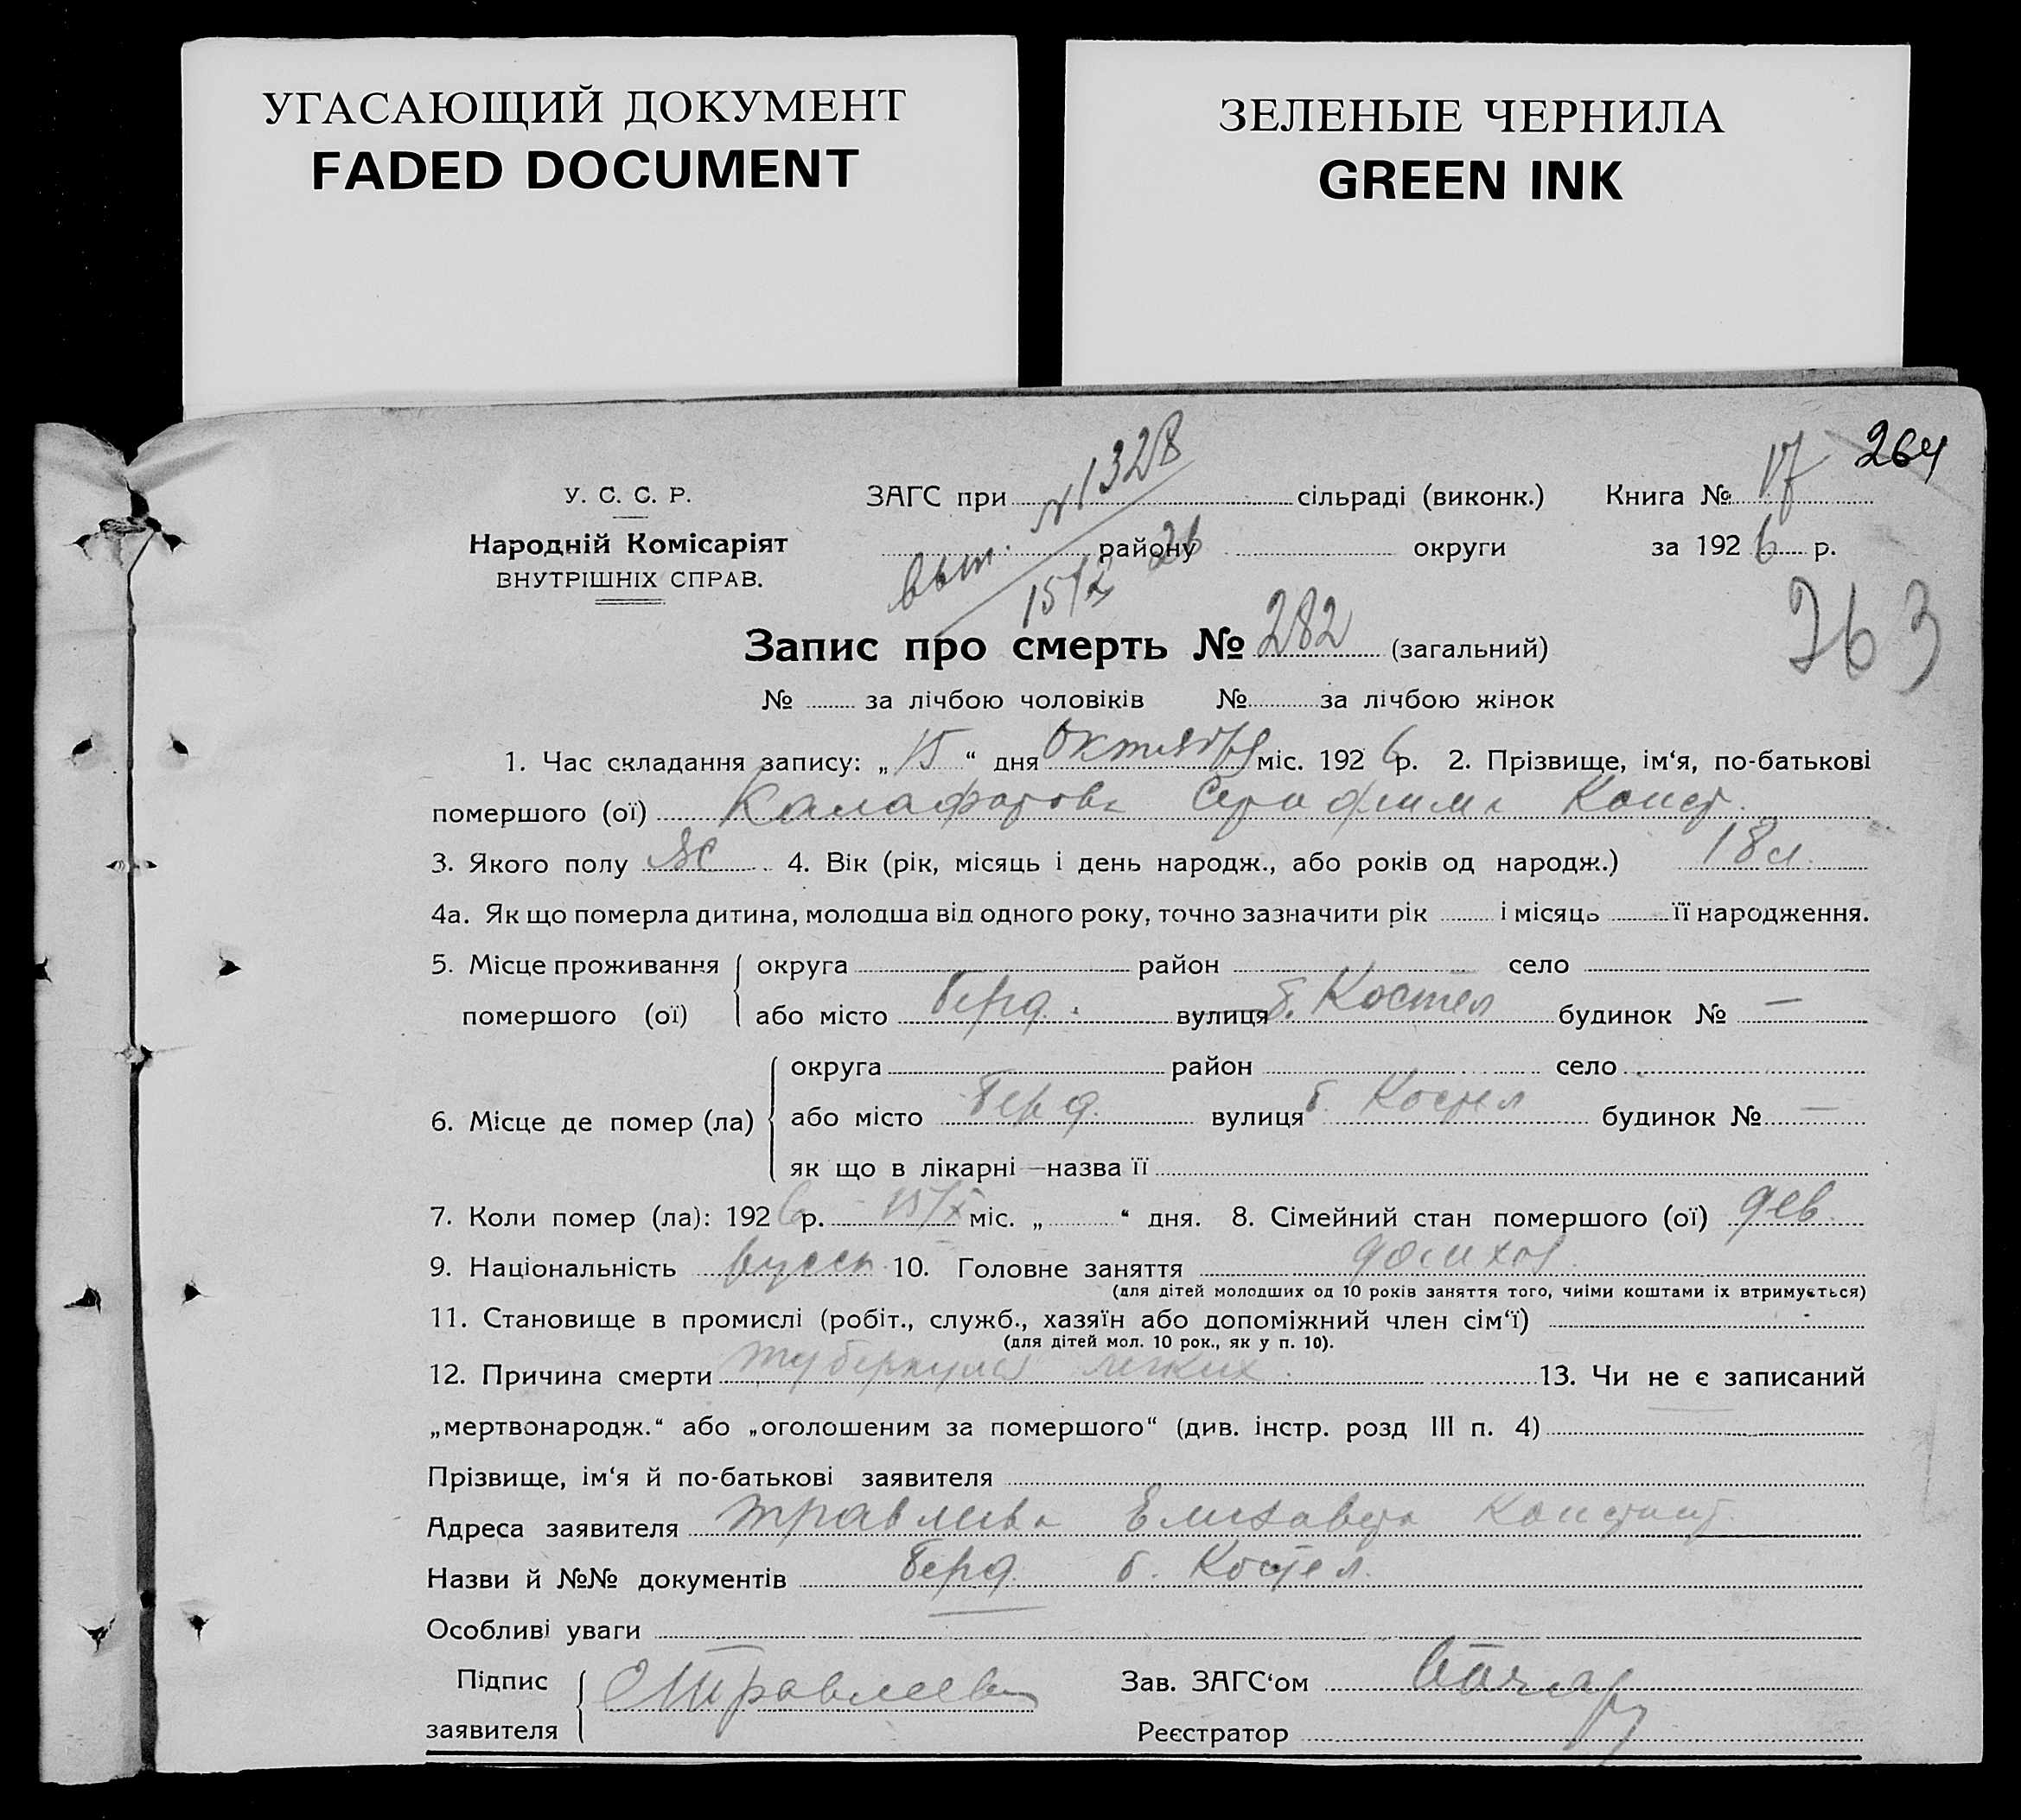 УГАСАЮЩИЙ ДОКУМЕНТ
FADED DOCUMENT
ЗЕЛЕНЫЕ ЧЕРНИЛА
GREEN INK
264
У. С. С. Р.
Народній Комісаріят
ВНУТРІШНІХ СПРАВ.
ЗАГС при сільраді (виконк.) Книга № 17
району округи за 1926 р.
вып. №1328
15/X 26
263
Запис про смерть № 282 (загальний)
№ за лічбою чоловіків № за лічбою жінок
1. Час складання запису: „15“ дня октября міс. 1926 р. 2. Прізвище, ім‘я, по-батькові
помершого (ої) Калафатова Серафима Конст.
3. Якого полу ж 4. Вік (рік, місяць і день народж., або років од народж.) 18 л.
4а. Як що померла дитина, молодша від одного року, точно зазначити рік і місяць її народження.
5. Місце проживання помершого (ої) округа район село
або місто Берд. вулиця б. Костел будинок № —
6. Місце де помер (ла) округа район село
або місто Берд. вулиця б. Костел будинок № —
як що в лікарні—назва її
7. Коли помер (ла): 1926 р. 15/X міс. „ “ дня. 8. Сімейний стан помершого (ої) дев.
9. Національність русск. 10. Головне заняття домхоз.
(для дітей молодших од 10 років заняття того, чиїми коштами їх втримується)
11. Становище в промислі (робіт., служб., хазяїн або допоміжний член сім‘ї)
(для дітей мол. 10 рок., як у п. 10).
12. Причина смерти туберкулез легких. 13. Чи не є записаний
„мертвонародж.“ або „оголошеним за помершого“ (див. інстр. розд III п. 4)
Прізвище, ім‘я й по-батькові заявителя
Адреса заявителя Травлеева Елизавета Констант.
Назви й №№ документів Берд. б. Костел.
Особливі уваги
Підпис заявителя Е Травлеева Зав. ЗАГС‘ом
Реєстратор